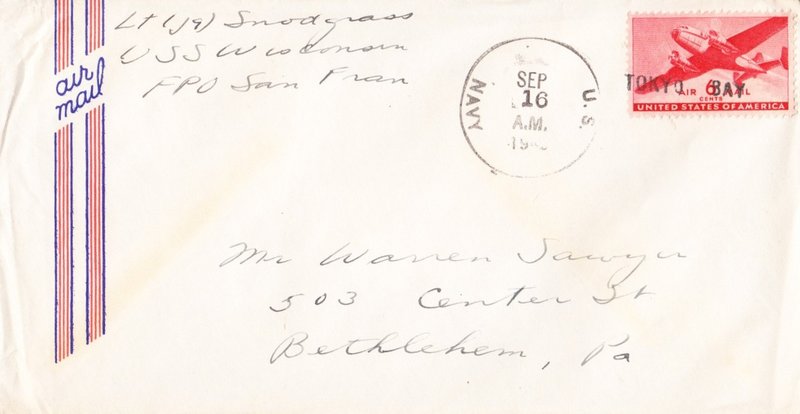 Lt (jg) Snodgrass
USS Wisconsin
FPO San Fran
air
mail
U.S.
NAVY
SEP
16
A.M.
TOKYO BAY
AIR 6 MAIL
CENTS
UNITED STATES OF AMERICA
Mr Warren Sawyer
503 Center St
Bethlehem, Pa